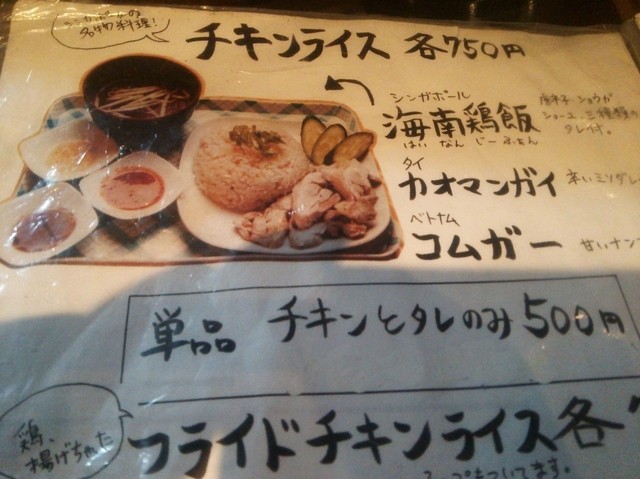 シンガポールの
名物料理!
チキンライス 各750円
シンガポール
海南鶏飯
はい なん じー ふぁん
唐辛子 ショウガ
ショーユ 三種類の
タレ付。
タイ
カオマンガイ 辛いミソダレ
ベトナム
コムガー 甘いナンプ
単品 チキンとタレのみ 500円
鶏、
揚げちゃった
フライドチキンライス 各
スープもついてます。